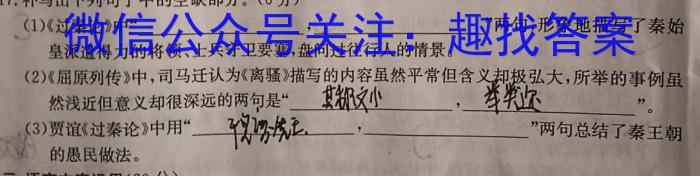 17.补写出下列句子中的空缺部分。(6分)
(1)《过秦论》中“ ， ”两句,形象地描写了秦始
皇派遣得力的将领、士兵守卫要塞,盘问过往行人的情景。
微信公众号关注：趣找答案
(2)《屈原列传》中,司马迁认为《离骚》描写的内容虽然平常但含义却极弘大,所举的事例虽
然浅近但意义却很深远的两句是“ 其称文小 , 举类迩 ”。
(3)贾谊《过秦论》中用“ , ”两句总结了秦王朝
的愚民做法。